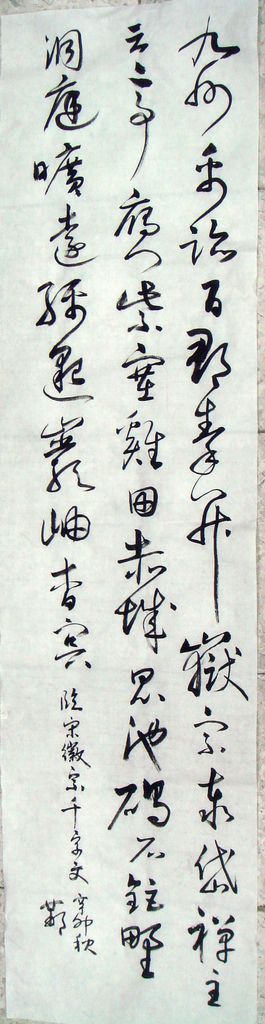 九州禹迹百郡秦并嶽宗泰岱禪主
云亭雁門紫塞雞田赤城昆池碣石鉅野
洞庭曠遠綿邈巖岫杳冥
臨宋徽宗千字文
辛卯秋